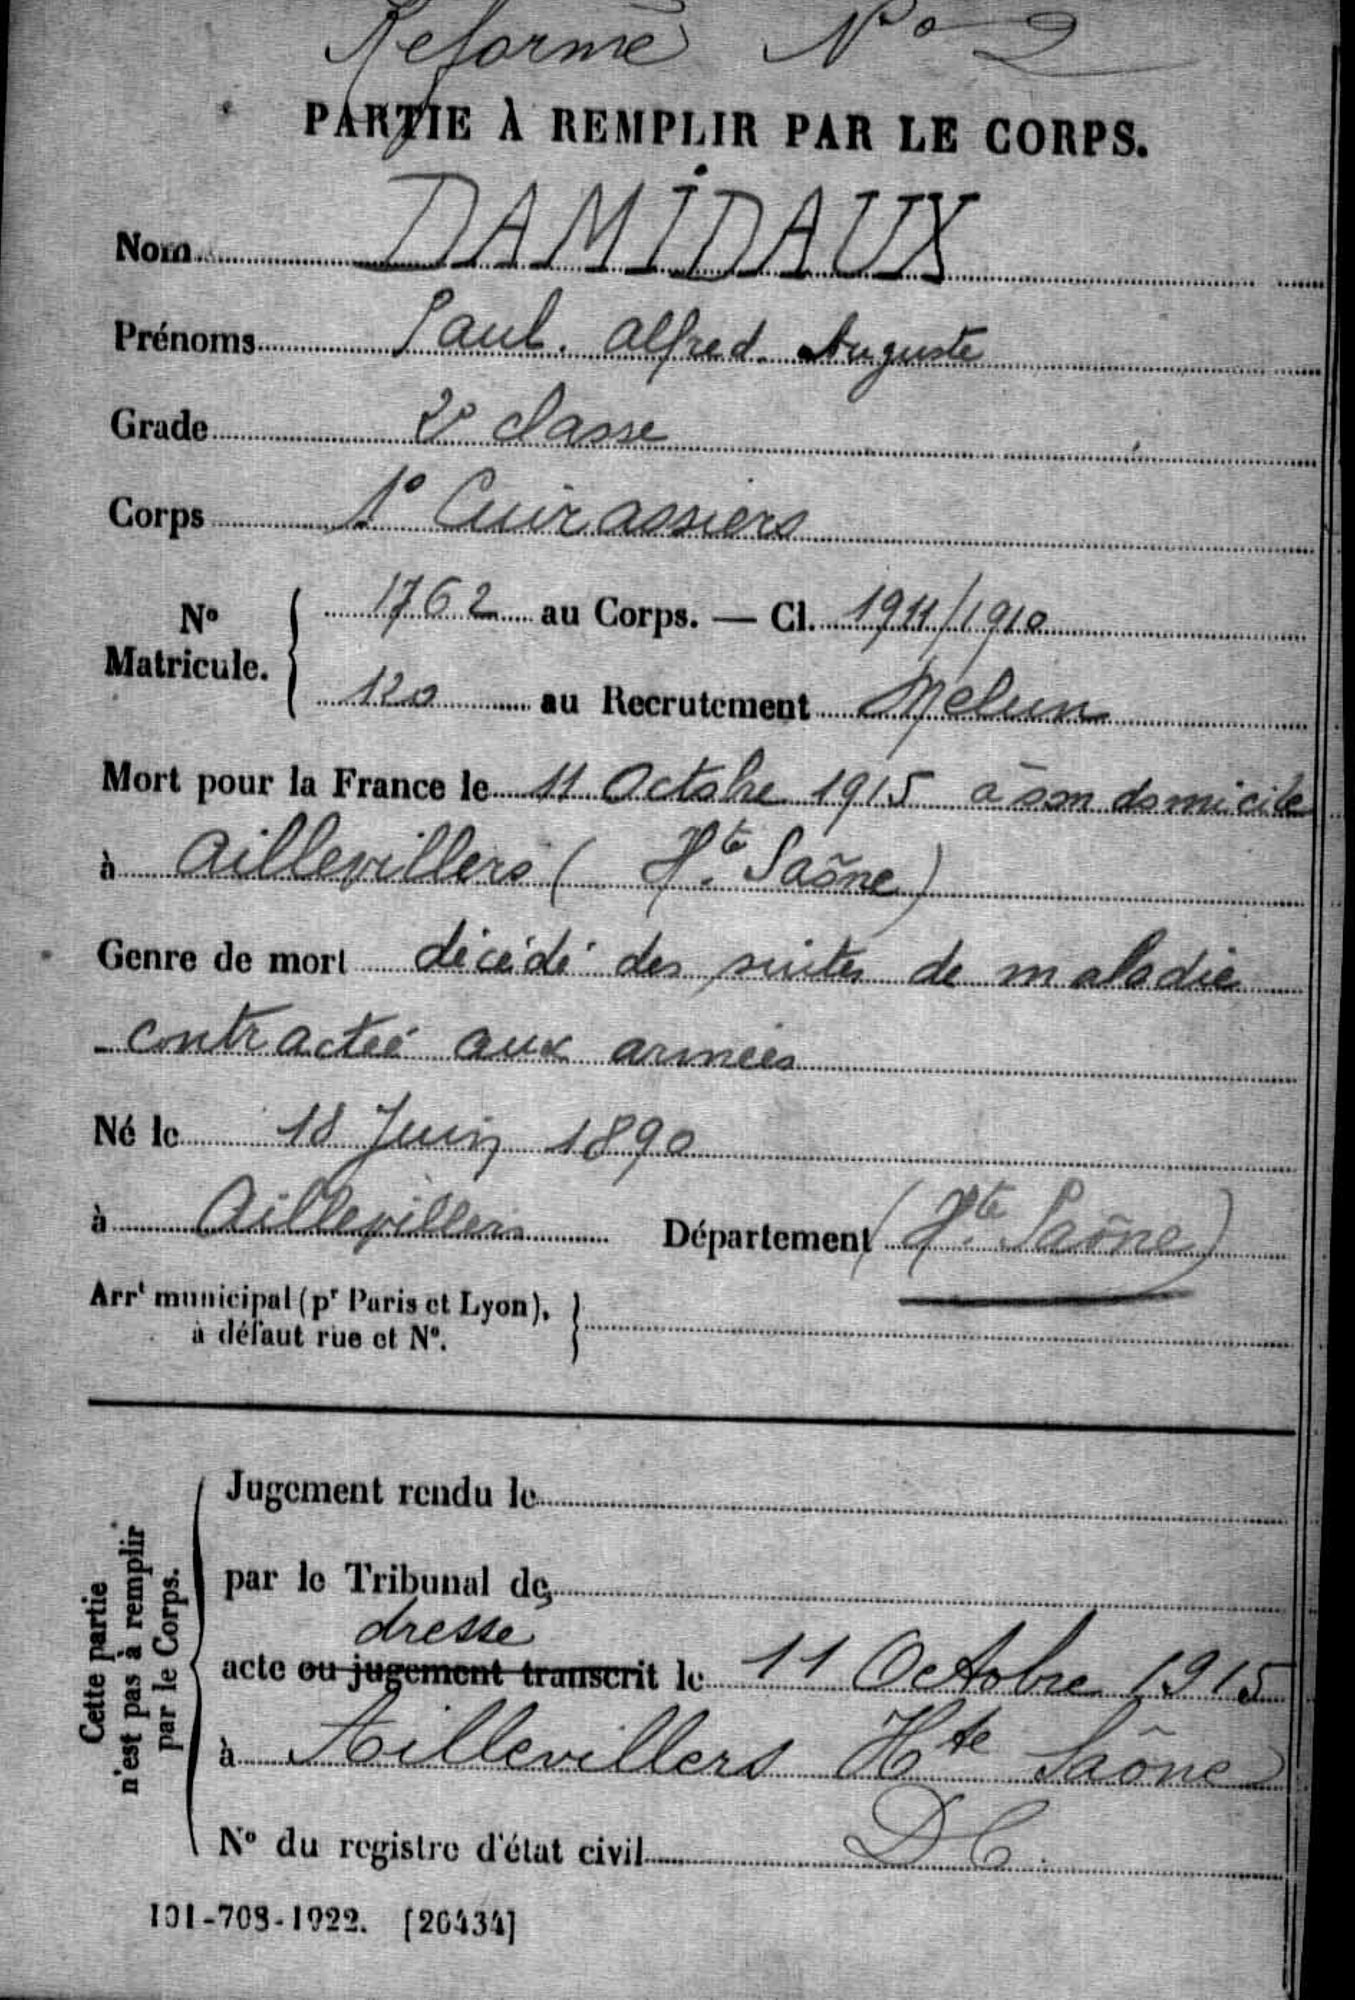 Réforme N° 2
PARTIE À REMPLIR PAR LE CORPS.
Nom DAMIDAUX
Prénoms Paul. Alfred. Auguste
Grade 2e classe
Corps 1° Cuirassiers
N° Matricule. 1762 au Corps. — Cl. 1911/1910
120 au Recrutement Melun
Mort pour la France le 11 Octobre 1915 à son domicile
à Aillevillers (Hte Saône)
Genre de mort décédé des suites de maladie
contractée aux armées
Né le 18 Juin 1890
à Aillevillers Département (Hte Saône)
Arrt municipal (pr Paris et Lyon),
à défaut rue et N°.
Cette partie
n'est pas à remplir
par le Corps.
Jugement rendu le
par le Tribunal de
dresse
acte ou jugement transcrit le 11 Octobre 1915
à Aillevillers Hte Saône
N° du registre d'état civil DC
101-708-1922. [26434]